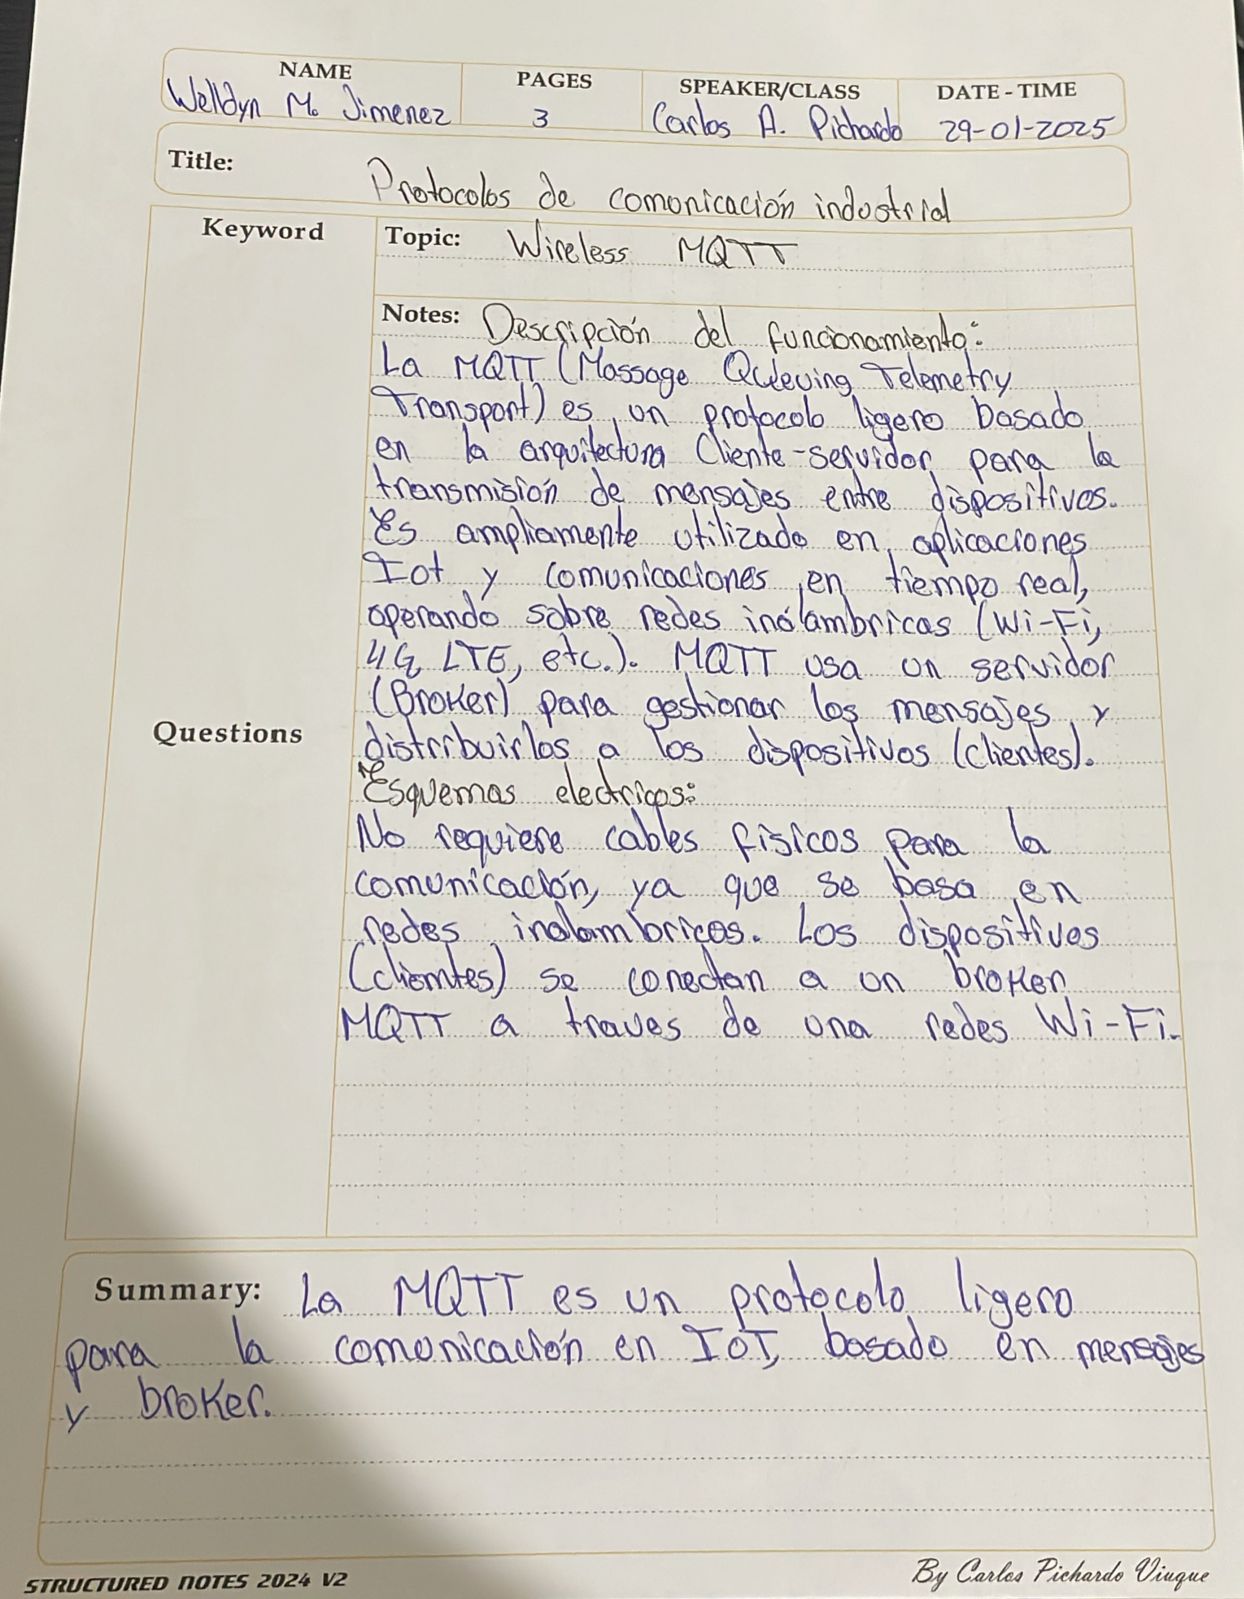 NAME PAGES SPEAKER/CLASS DATE - TIME
Welldyn M. Jimenez 3 Carlos A. Pichardo 29-01-2025
Title: Protocolos de comonicación industrial
Keyword
Topic: Wireless MQTT
Notes: Descripción del funcionamiento:
La MQTT (Massage Queving Telemetry
Transport) es un protocolo ligero basado
en la arquitectura Cliente-servidor para la
transmisión de mensajes entre dispositivos.
Es ampliamente utilizado en aplicaciones
Iot y comunicaciones en tiempo real,
operando sobre redes inálambricas (Wi-Fi,
4G, LTE, etc.). MQTT usa un servidor
(Broker) para gestionar los mensajes y
Questions
distribuirlos a los dispositivos (clientes).
Esquemas electricos:
No requiere cables físicos para la
comunicación, ya que se basa en
redes inalambricas. Los dispositivos
(cliemtes) se conectan a un broker
MQTT a traves de una redes Wi-Fi.
Summary: La MQTT es un protocolo ligero
para la comonicación en IoT, basado en mensajes
y broker.
STRUCTURED NOTES 2024 V2
By Carlos Pichardo Viuque